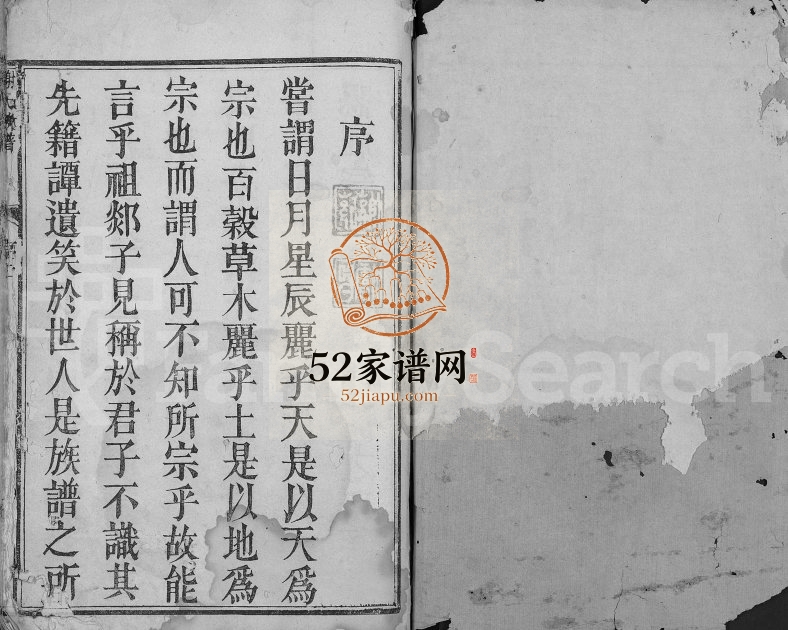 序
嘗謂日月星辰麗乎天是以天爲
宗也百穀草木麗乎土是以地爲
宗也而謂人可不知所宗乎故能
言乎祖郯子見稱於君子不識其
先籍譚遺笑於世人是族譜之所
52家谱网
52jiapu.com
FamilySearch